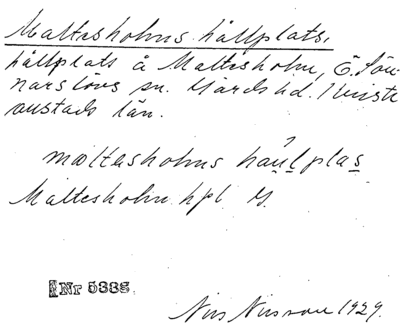 Maltesholms hållplats.
hållplats å Maltesholm, Ö. Sön-
narslövs sn. Gärds hd. Kristi
anstads län.
maltesholms håu̯lplas
Maltesholm hpl. G.
Nr 5338.
Nils Nilsson 1929.